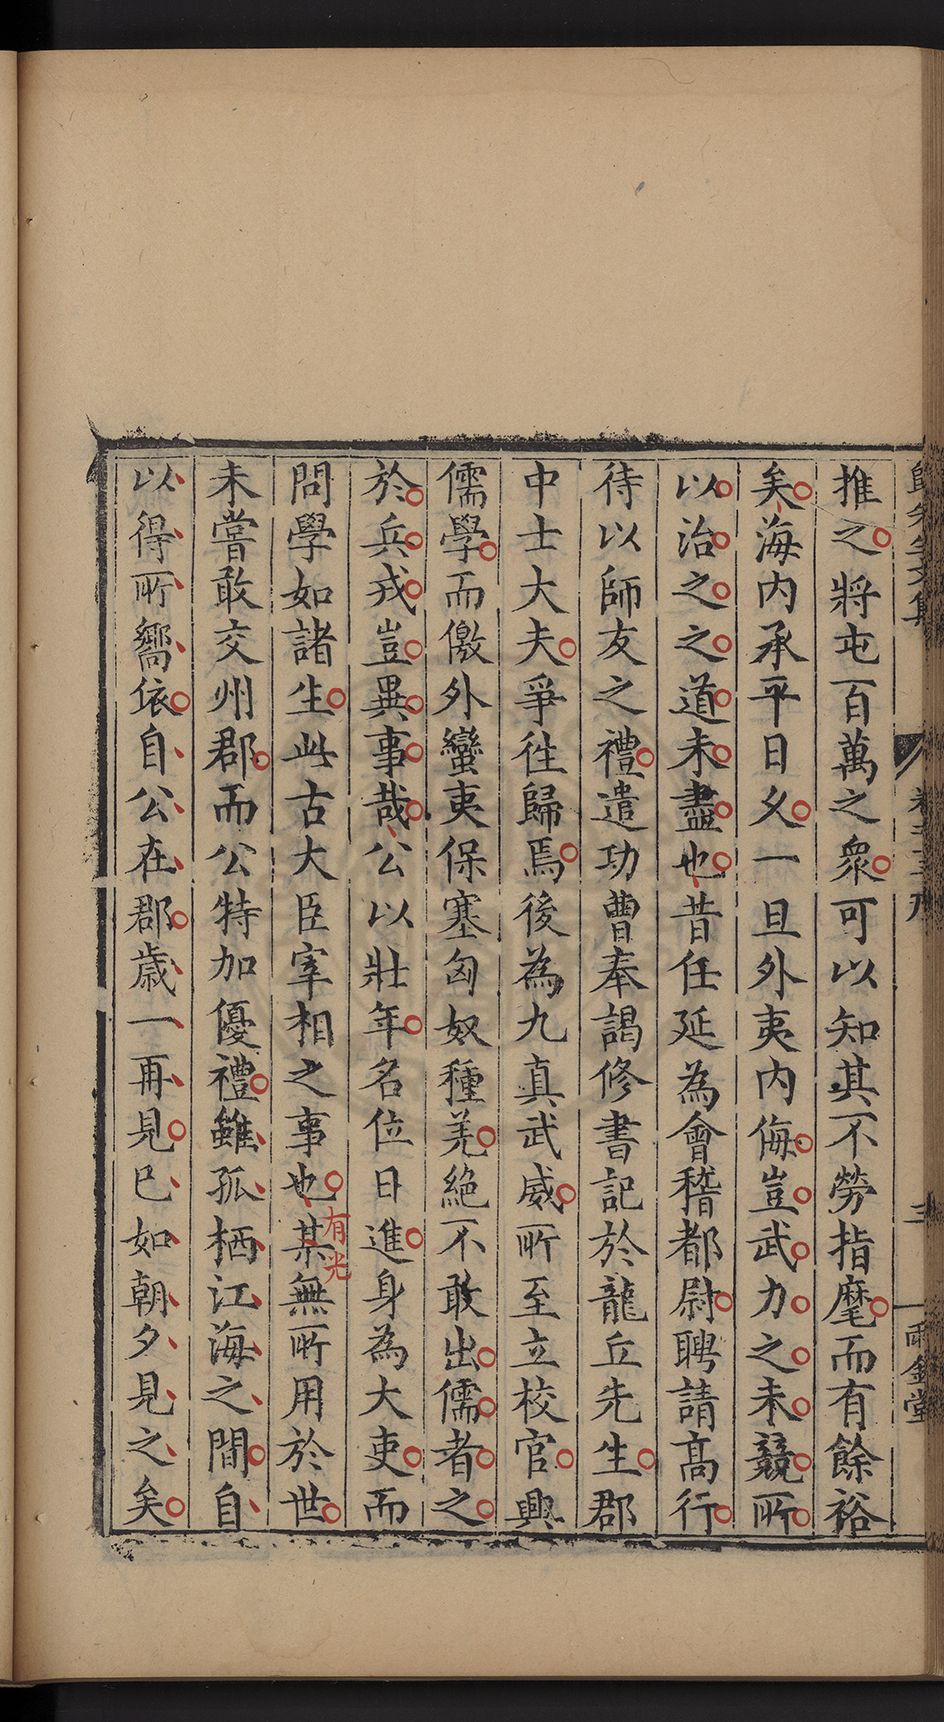 推之將屯百萬之衆可以知其不勞指麾而有餘裕
矣海内承平日久一旦外夷内侮豈武力之未競所
以治之之道未盡也昔任延為會稽都尉聘請高行
待以師友之禮遣功曹奉謁修書記於龍丘先生郡
中士大夫爭往歸焉後為九真武威所至立校官興
儒學而儌外蠻夷保塞匈奴種羌絶不敢出儒者之
於兵戎豈異事哉公以壯年名位日進身為大吏而
問學如諸生此古大臣宰相之事也某無所用於世
有光
未嘗敢交州郡而公特加優禮雖孤栖江海之間自
以得所嚮依自公在郡歳一再見已如朝夕見之矣